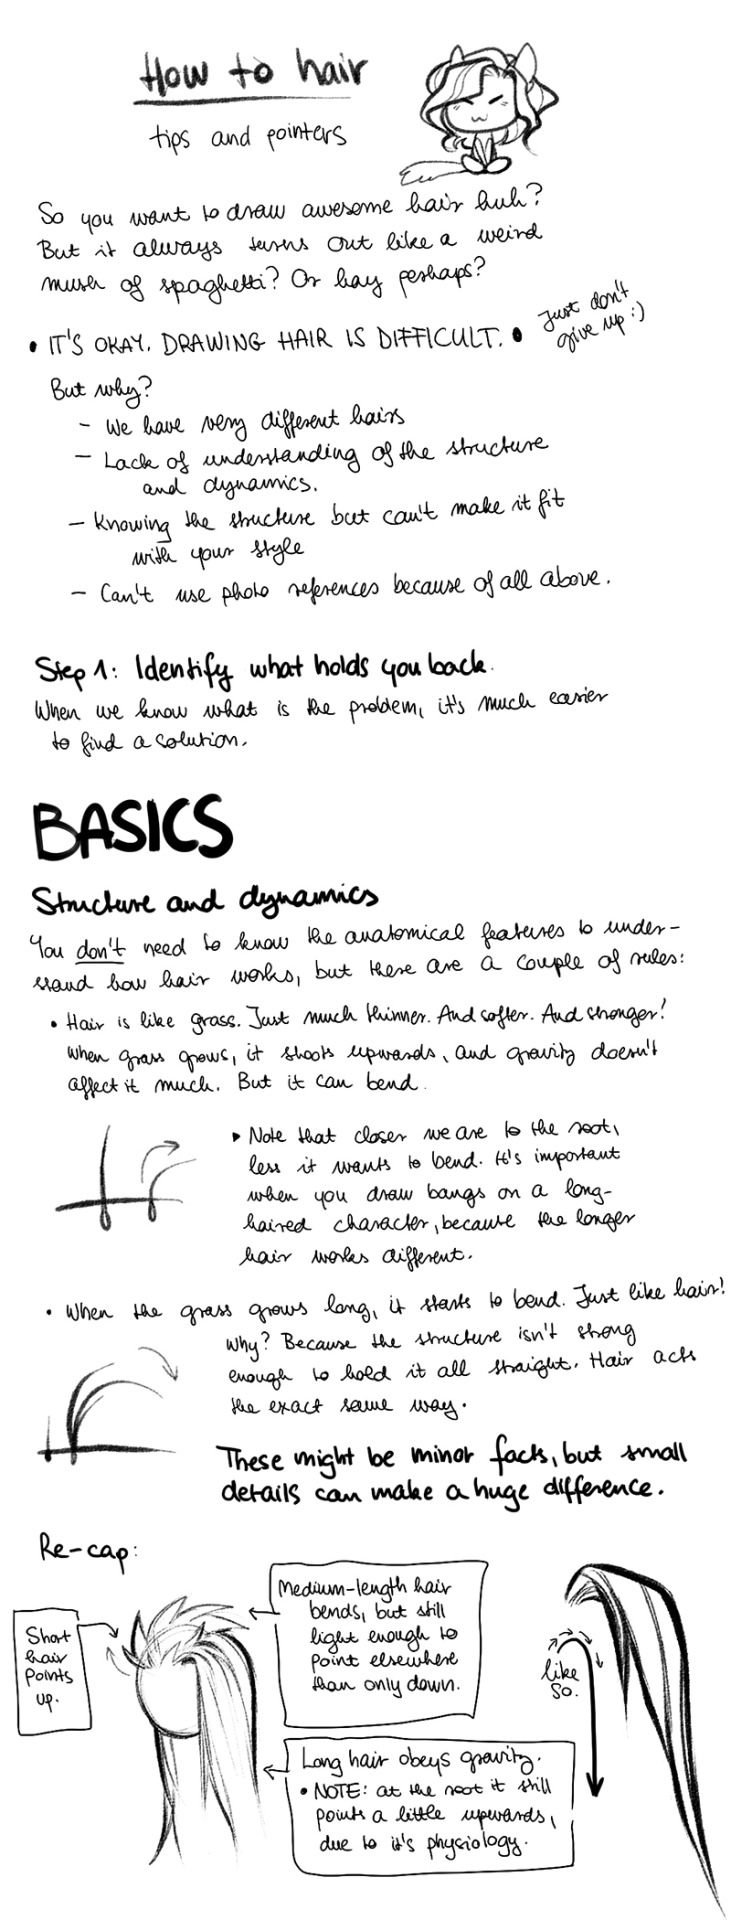 How to hair
tips and pointers
So you want to draw awesome hair huh?
But it always turns out like a weird
mush of spaghetti? Or hay perhaps?
• IT'S OKAY. DRAWING HAIR IS DIFFICULT. •
Just don't
give up :)
But why?
- We have very different hairs
- Lack of understanding of the structure
and dynamics.
- Knowing the structure but can't make it fit
with your style
- Can't use photo references because of all above.
Step 1: Identify what holds you back.
When we know what is the problem, it's much easier
to find a solution.
BASICS
Structure and dynamics
You don't need to know the anatomical features to under-
stand how hair works, but there are a couple of rules:
• Hair is like grass. Just much thinner. And softer. And stronger!
When grass grows, it shoots upwards, and gravity doesn't
affect it much. But it can bend.
▸ Note that closer we are to the root,
less it wants to bend. It's important
when you draw bangs on a long-
haired character, because the longer
hair works different.
• When the grass grows long, it starts to bend. Just like hair!
Why? Because the structure isn't strong
enough to hold it all straight. Hair acts
the exact same way.
These might be minor facts, but small
details can make a huge difference.
Re-cap:
Short
hair
points
up.
Medium-length hair
bends, but still
light enough to
point elsewhere
than only down.
Long hair obeys gravity.
• NOTE: at the root it still
points a little upwards,
due to it's physiology.
like
so.